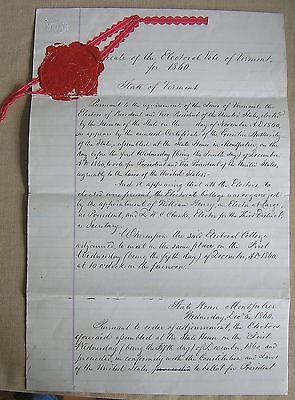 cate of the Electoral Vote of Vermont,
for 1860.
State of Vermont
Pursuant to the requirement of the Laws of Vermont, the
Electors of President and Vice President of the United States, elected
by the Freemen of the State on the day of November A.D. 1860,
as appears by the annexed Certificate of the Executive Authority
of the State, assembled at the State House in Montpelier, on the
day before the first Wednesday (being the fourth day) of December
A.D. 1860, to vote for President and Vice President of the United States,
agreeably to the Laws of the United States:
And it appearing that all the Electors so
elected were present the Electoral College was organized
by the appointment of William Henry, an Elector at Large,
as President, and L W C Clarke, Elector for the Third District,
as Secretary.
Whereupon the said Electoral College
adjourned, to meet in the same place, on the first
Wednesday (being the fifth day) of December, A.D. 1860,
at 10 o'clock in the forenoon.
State House Montpelier
Wednesday, Dec. 5, 1860.
Pursuant to order of adjournment the Electors
aforesaid assembled at the State House on the first
Wednesday (being the fifth day) of December, 1860, and
proceeded, in conformity with the Constitution and Laws
of the United States, to ballot for President